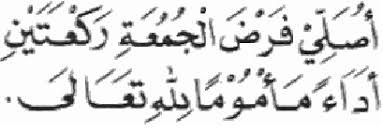 أُصَلِّيْ فَرْضَ الْجُمُعَةِ رَكْعَتَيْنِ
أَدَاءً مَأْمُوْمًا لِلّٰهِ تَعَالَى.